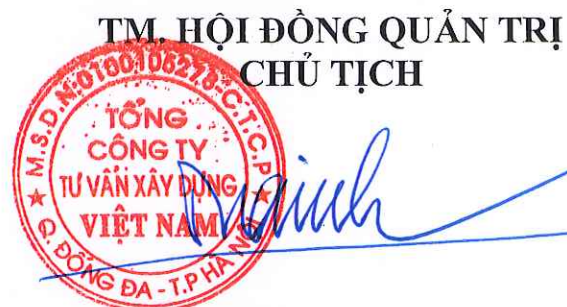 TM. HỘI ĐỒNG QUẢN TRỊ
CHỦ TỊCH
M.S.D.N:0100106273-C.T.C.P
TỔNG
CÔNG TY
TƯ VẤN XÂY DỰNG
VIỆT NAM
Q. ĐỐNG ĐA - T.P HÀ NỘI